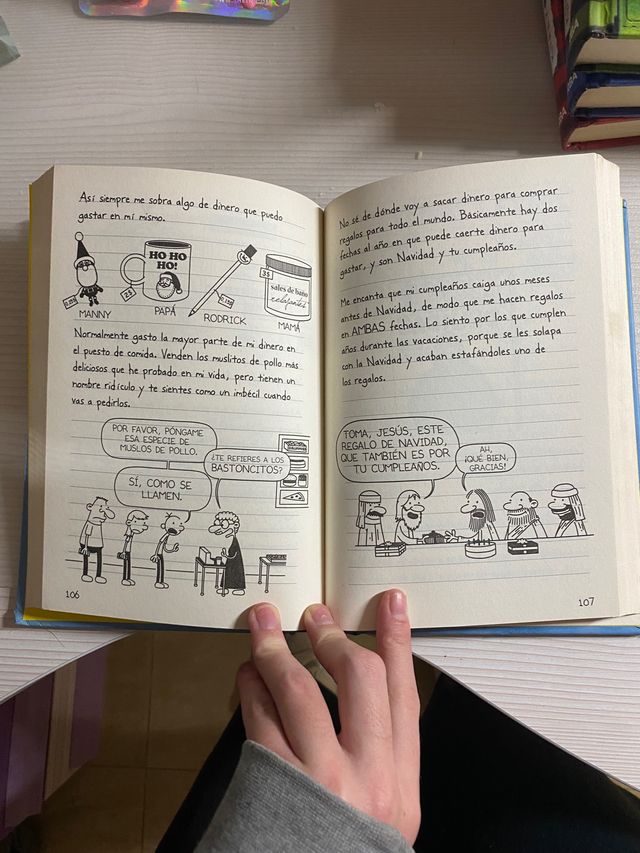 Así siempre me sobra algo de dinero que puedo
gastar en mí mismo.
HO HO
HO!
sales de baño
MANNY
PAPÁ
RODRICK
MAMÁ
Normalmente gasto la mayor parte de mi dinero en
el puesto de comida. Venden los muslitos de pollo más
deliciosos que he probado en mi vida, pero tienen un
nombre ridículo y te sientes como un imbécil cuando
vas a pedirlos.
POR FAVOR, PÓNGAME
ESA ESPECIE DE
MUSLOS DE POLLO.
¿TE REFIERES A LOS
BASTONCITOS?
SÍ, COMO SE
LLAMEN.
106
No sé de dónde voy a sacar dinero para comprar
regalos para todo el mundo. Básicamente hay dos
fechas al año en que puede caerte dinero para
gastar, y son Navidad y tu cumpleaños.
Me encanta que mi cumpleaños caiga unos meses
antes de Navidad, de modo que me hacen regalos
en AMBAS fechas. Lo siento por los que cumplen
años durante las vacaciones, porque se les solapa
con la Navidad y acaban estafándoles uno de
los regalos.
TOMA, JESÚS, ESTE
REGALO DE NAVIDAD,
QUE TAMBIÉN ES POR
TU CUMPLEAÑOS.
AH,
¡QUÉ BIEN,
GRACIAS!
107